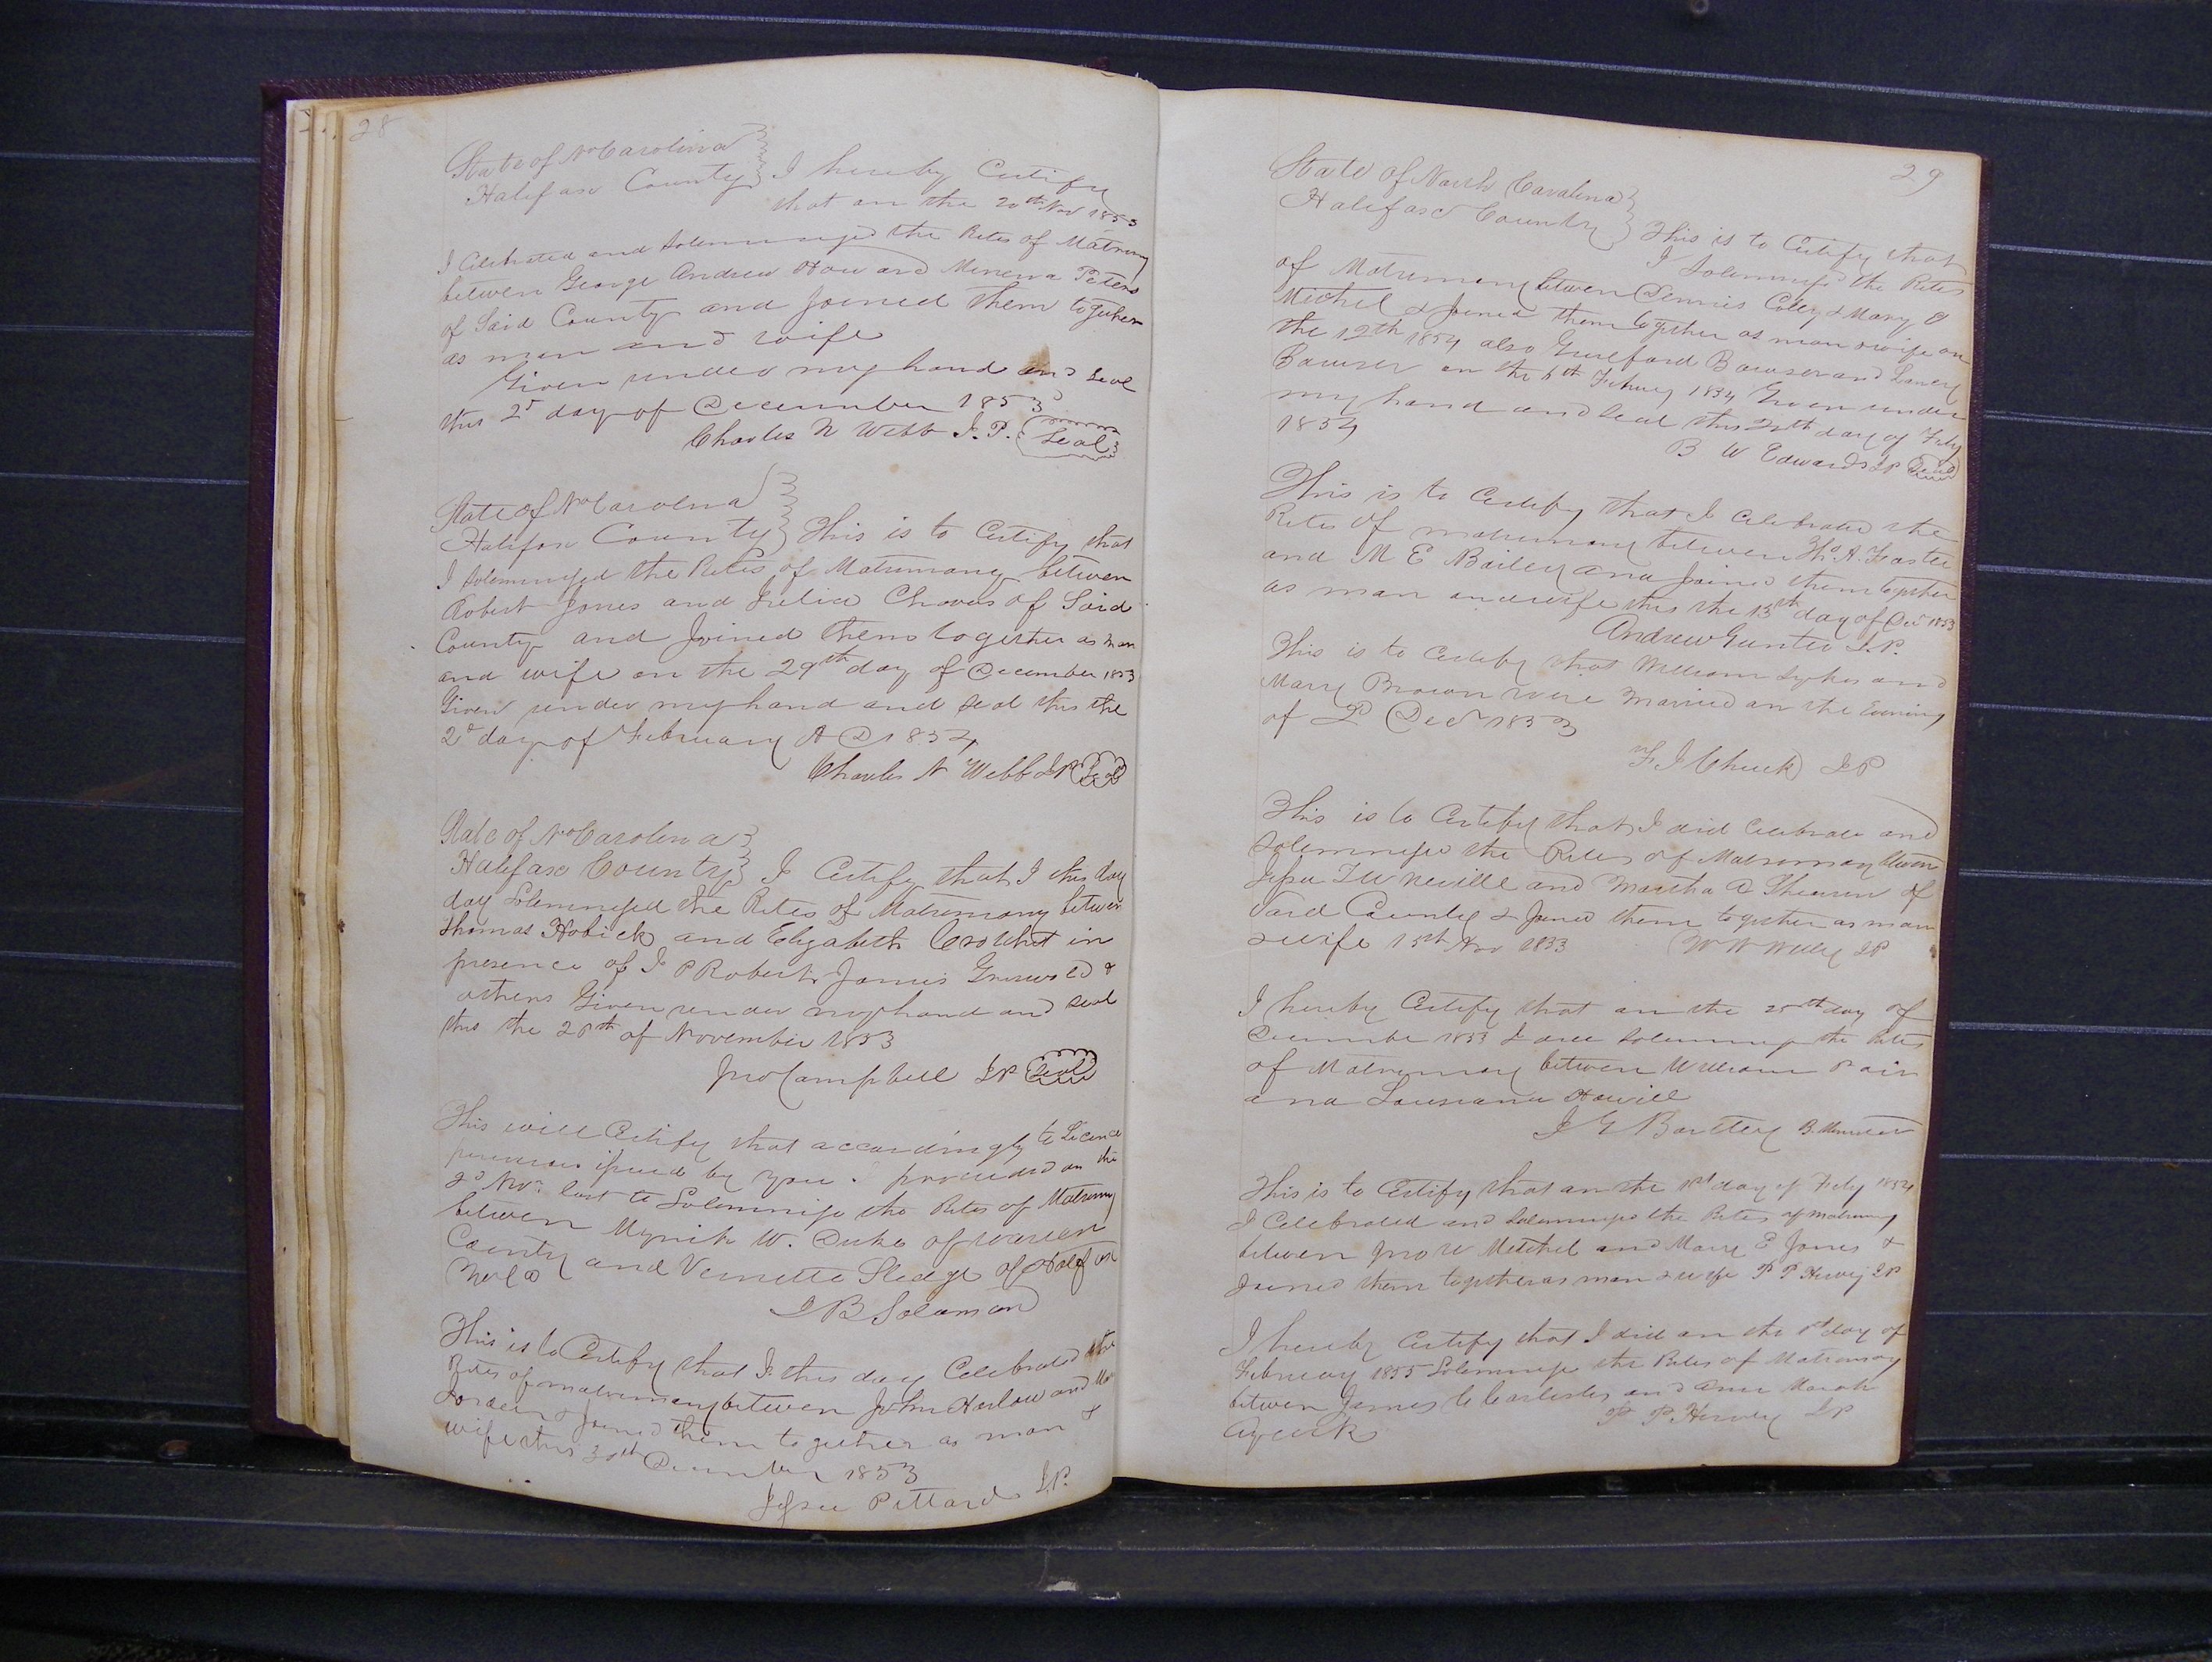 28
State of No Carolina
Halifax County I hereby Certify
that on the 20th Nov 1853
I Celebrated and Solemnized the Rites of Matrimony
between George Andrew How and Minerva Peters
of Said County and Joined them together
as man and wife
Given under my hand and Seal
this 2d day of December 1853
Charles N Webb J.P. Seal
State of No Carolina
Halifax County This is to Certify that
I Solemnized the Rites of Matrimony between
Robert Jones and Julia Chavos of Said
County and Joined them together as man
and wife on the 29th day of December 1853
Given under my hand and Seal this the
2d day of February A D 1854
Charles N Webb JP Seal
State of No Carolina
Halifax County I Certify that I this day
day Solemnized the Rites of Matrimony between
Thomas Hobick and Elizabeth in
presence of J P Robert James &
others Given under my hand and Seal
this the 20th of November 1853
Jno Campbell JP Seal
This will Certify that accordingly to Licence
issued by you I proceeded on the
2d Nov. last to Solemnize the Rites of Matrimony
between W. Duke of Warren
County and Sledge of Halifax
No Ca
J B Solomon
This is to Certify that I this day Celebrated the
Rites of matrimony between John Harlow and
& Joined them together as man &
wife this December 1853
Jesse Pittard J.P.
29
State of North Carolina
Halifax County This is to Certify that
I Solemnized the Rites
of Matrimony between Dennis Coley & Mary E
Michel & Joined them together as man & wife on
the 12th 1854 also Guilford Bowser and
Bowser on the 6th 1854 Given under
my hand and Seal this day of Feby
1854
B W Edwards JP Seal
This is to Certify that I Celebrated the
Rites of matrimony between Th. A. Foster
and M E Bailey and Joined them together
as man and wife this the 13th day of Dec 1853
Andrew Gunter J.P.
This is to Certify that William Sykes and
Mary Brown were Married on the Evening
of Decr 1853
F J Cheek JP
This is to Certify that I did Celebrate and
Solemnize the Rites of Matrimony
Jesse Neville and Martha A Shearin of
Said County & Joined them together as man
& wife 15th Nov 1853 W W Willey JP
I hereby Certify that on the 25th day of
December 1853 I Solemnize the Rites
of Matrimony between William Pair
and Louisiana
J G Bartley B. Minister
This is to Certify that on the 1st day of Feby 1854
I Celebrated and Solemnized the Rites of matrimony
between Jno W Mitchel and Mary E Jones &
Joined them together as man & wife P P Hervey JP
I hereby Certify that I did on the day of
February 1855 Solemnize the Rites of Matrimony
between James and Ann Mariah
Aycock P P Hervey JP